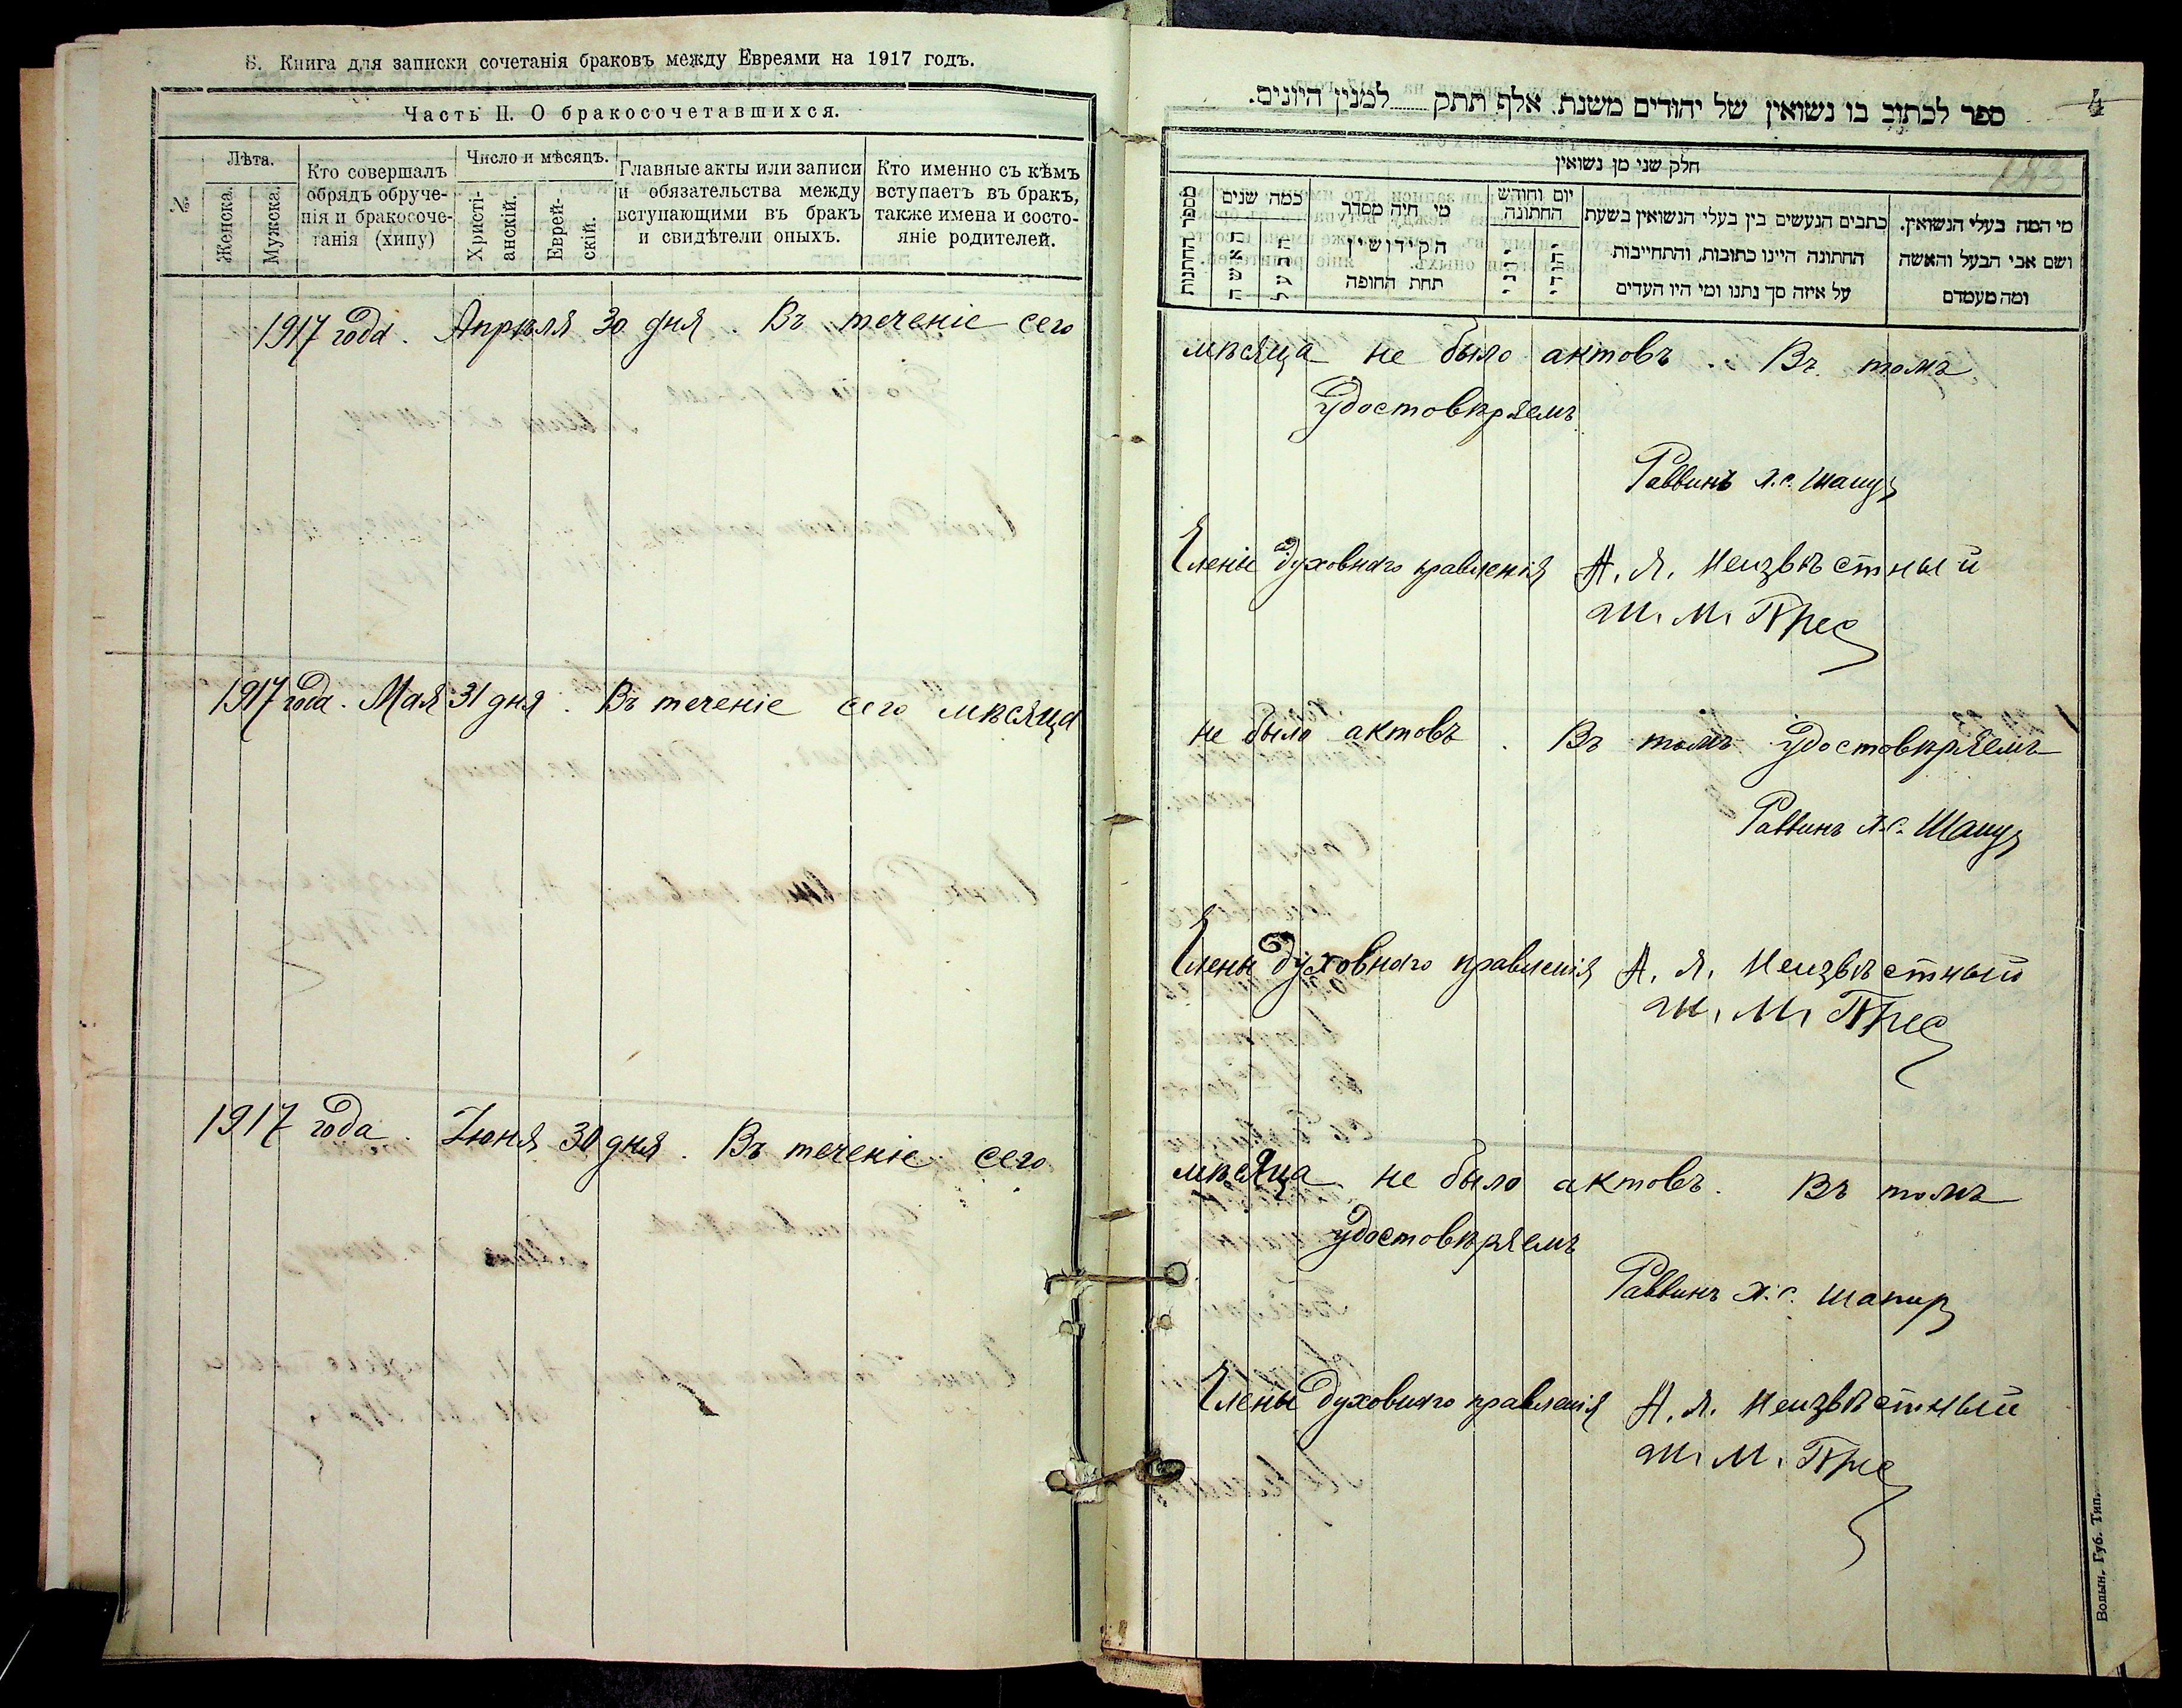 Б. Книга для записки сочетанія браковъ между Евреями на 1917 годъ.
Часть II. О бракосочетавшихся.
№
Лѣта.
Женска.
Мужска.
Кто совершалъ
обрядъ обруче-
нія и бракосоче-
танія (хипу)
Число и мѣсяцъ.
Христі-
анскій.
Еврей-
скій.
Главные акты или записи
и обязательства между
вступающими въ бракъ
и свидѣтели оныхъ.
Кто именно съ кѣмъ
вступаетъ въ бракъ,
также имена и состо-
яніе родителей.
1917 года. Апрѣля 30 дня. Въ теченіе сего
1917 года. Мая 31 дня. Въ теченіе сего мѣсяца
1917 года. Іюня 30 дня. Въ теченіе сего
4
ספר לכתוב בו נשואין של יהודים משנת אלף תתק למנין היונים.
חלק שני מן נשואין
מספר החתונות
כמה שנים
האשה
הבעל
מי היה מסדר
הקידושין
תחת החופה
יום וחודש
החתונה
יוני
יהודי
כתבים הנעשים בין בעלי הנשואין בשעת
החתונה היינו כתובות, והתחייבות
על איזה סך נתנו ומי היו העדים
מי המה בעלי הנשואין.
ושם אבי הבעל והאשה
ומה מעמדם
мѣсяца не было актовъ. Въ томъ
удостовѣряемъ
Раввинъ Х.С. Шапир
Члены духовнаго правленія А. Я. Неизвѣстный
Ш. М. Прес
не было актовъ. Въ томъ удостовѣряемъ
Раввинъ Х.С. Шапир
Члены духовнаго правленія А. Я. Неизвѣстный
Ш. М. Прес
мѣсяца не было актовъ. Въ томъ
удостовѣряемъ
Раввинъ Х.С. Шапир
Члены духовнаго правленія А. Я. Неизвѣстный
Ш. М. Прес
Волын. Губ. Тип.